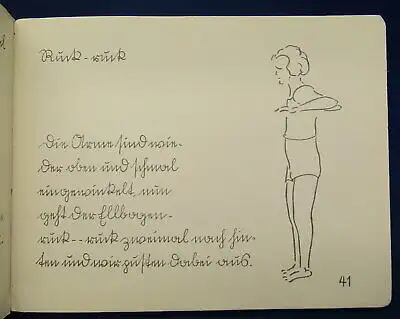 Ruck-ruck
Die Arme sind wie-
der oben und schmal
eingewinkelt, nun
geht der Ellbogen-
ruck--ruck zweimal nach hin-
ten und wir pusten dabei aus.
41